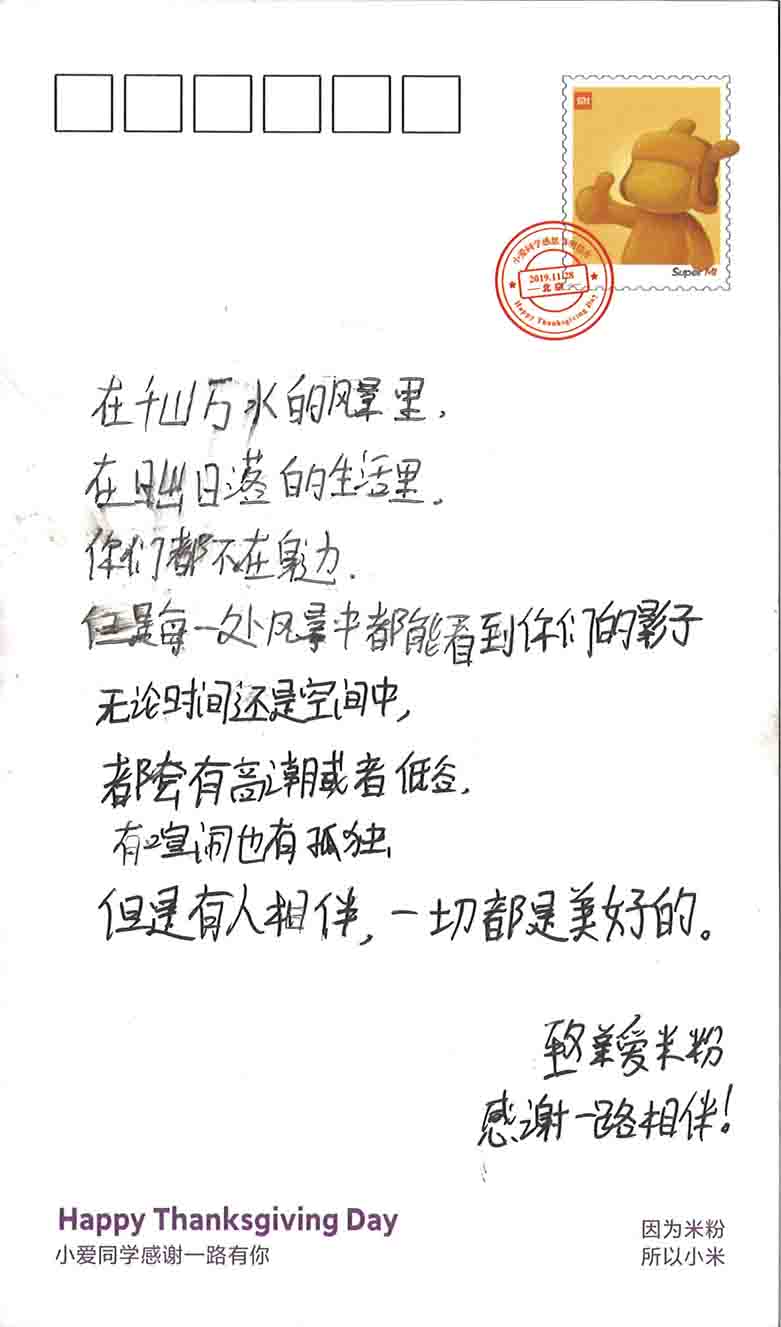 MI
Super MI
小爱同学感恩节明信片
2019.11.28
北京
Happy Thanksgiving Day
在千山万水的风景里,
在日出日落的生活里。
你们都不在
但是每一处风景中都能看到你们的影子
无论时间还是空间中,
都会有高潮或者低谷,
有喧闹也有孤独,
但是有人相伴,一切都是美好的。
爱米粉
感谢一路相伴!
Happy Thanksgiving Day
小爱同学感谢一路有你
因为米粉
所以小米